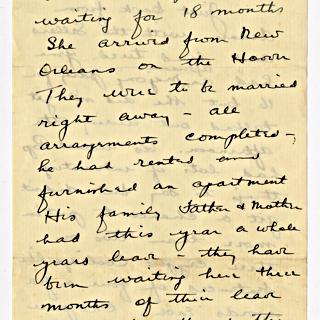 waiting for 18 months
She arrived from New
Orleans on the Hoover
They were to be married
right away – all
arrangements completed –
he had rented and
furnished an apartment
His family Father & Mother
had this year a whole
years leave – they have
been waiting here three
months of their leave